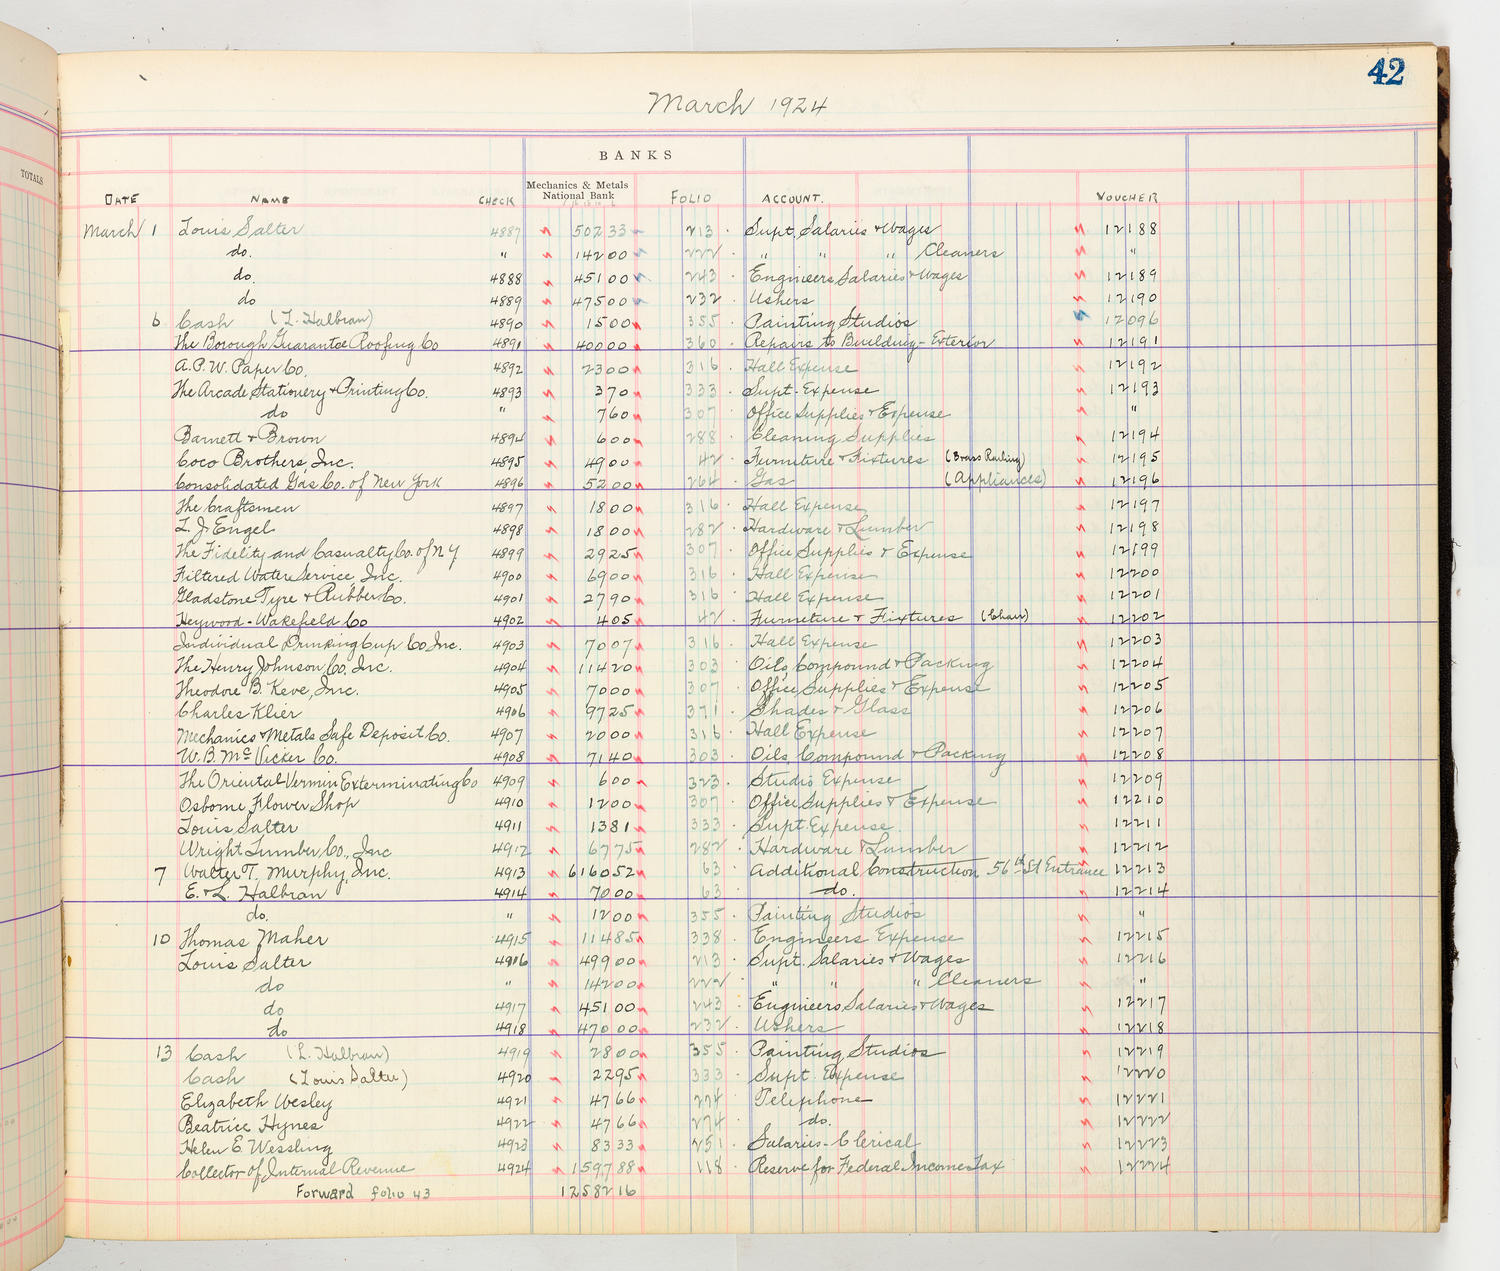 42
March 1924
TOTALS
BANKS
DATE NAME CHECK Mechanics & Metals National Bank FOLIO ACCOUNT. VOUCHER
March 1 Louis Salter 4887 502 33 213 Supt. Salaries & Wages 12188
do. " 142 00 222 " " " Cleaners "
do. 4888 451 00 243 Engineers Salaries & Wages 12189
do 4889 475 00 232 Ushers 12190
6 Cash (L. Halbran) 4890 15 00 355 Painting Studios 12096
The Borough Guarantee Roofing Co 4891 400 00 360 Repairs to Building - Exterior 12191
A.P.W. Paper Co. 4892 23 00 316 Hall Expense 12192
The Arcade Stationery & Printing Co. 4893 3 70 333 Supt. Expense 12193
do " 7 60 307 Office Supplies & Expense "
Barnett & Brown 4894 6 00 288 Cleaning Supplies 12194
Coco Brothers, Inc. 4895 49 00 42 Furniture & Fixtures (Brass Railing) 12195
Consolidated Gas Co. of New York 4896 52 00 264 Gas (Appliances) 12196
The Craftsmen 4897 18 00 316 Hall Expense 12197
L. J. Engel 4898 18 00 282 Hardware & Lumber 12198
The Fidelity and Casualty Co. of N Y 4899 29 25 307 Office Supplies & Expense 12199
Filtered Water Service, Inc. 4900 69 00 316 Hall Expense 12200
Gladstone Tyre & Rubber Co. 4901 27 90 316 Hall Expense 12201
Heywood-Wakefield Co 4902 4 05 42 Furneture & Fixtures (Chair) 12202
Individual Drinking Cup Co, Inc. 4903 70 07 316 Hall Expense 12203
The Henry Johnson Co, Inc. 4904 114 20 303 Oils, Compound & Packing 12204
Theodore B. Keve, Inc. 4905 70 00 307 Office Supplies & Expense 12205
Charles Klier 4906 97 25 371 Shades & Glass 12206
Mechanics & Metals Safe Deposit Co. 4907 20 00 316 Hall Expense 12207
W. B. McVicker Co. 4908 71 40 303 Oils, Compound & Packing 12208
The Oriental Vermin Exterminating Co 4909 6 00 323 Studio Expense 12209
Osborne Flower Shop 4910 12 00 307 Office Supplies & Expense 12210
Louis Salter 4911 13 81 333 Supt. Expense 12211
Wright Lumber Co., Inc 4912 67 75 282 Hardware & Lumber 12212
7 Walter T. Murphy, Inc. 4913 6160 52 63 Additional Construction 56th St Entrance 12213
E. & L. Halbran 4914 70 00 63 do. 12214
do. " 12 00 355 Painting Studios "
10 Thomas Maher 4915 114 85 338 Engineers Expense 12215
Louis Salter 4916 499 00 213 Supt. Salaries & Wages 12216
do " 142 00 222 " " " Cleaners "
do 4917 451 00 243 Engineers Salaries & Wages 12217
do 4918 470 00 232 Ushers 12218
13 Cash (L. Halbran) 4919 28 00 355 Painting Studios 12219
Cash (Louis Salter) 4920 22 95 333 Supt. Expense 12220
Elizabeth Wesley 4921 47 66 274 Telephone 12221
Beatrice Hynes 4922 47 66 274 do. 12222
Helen E. Wessling 4923 83 33 251 Salaries - Clerical 12223
Collector of Internal Revenue 4924 1597 88 118 Reserve for Federal Income Tax 12224
Forward folio 43 12582 16